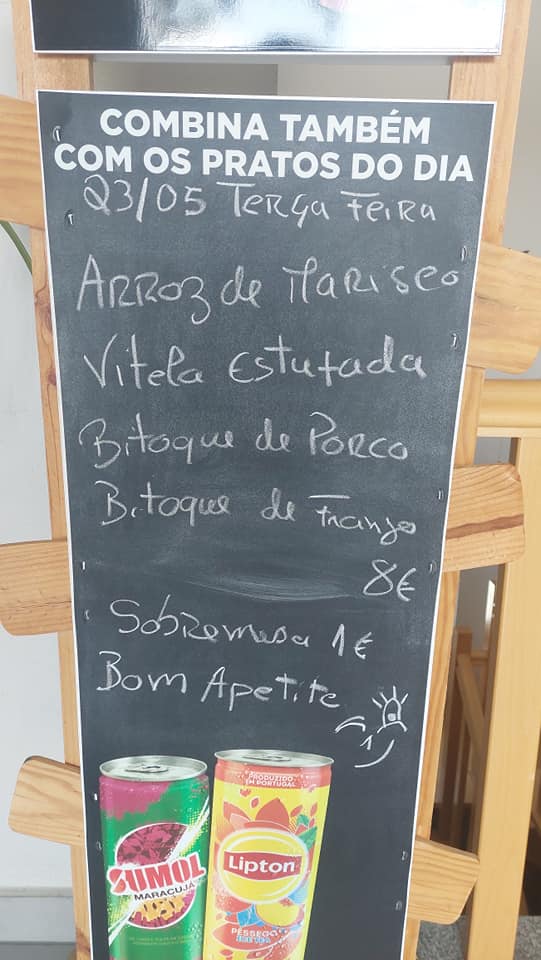 COMBINA TAMBÉM
COM OS PRATOS DO DIA
23/05 Terça Feira
Arroz de Marisco
Vitela Estufada
Bitoque de Porco
Bitoque de Frango
8€
Sobremesa 1€
Bom Apetite
SUMOL
MARACUJÁ
PRODUZIDO
EM PORTUGAL
Lipton
PÊSSEGO
ICE TEA